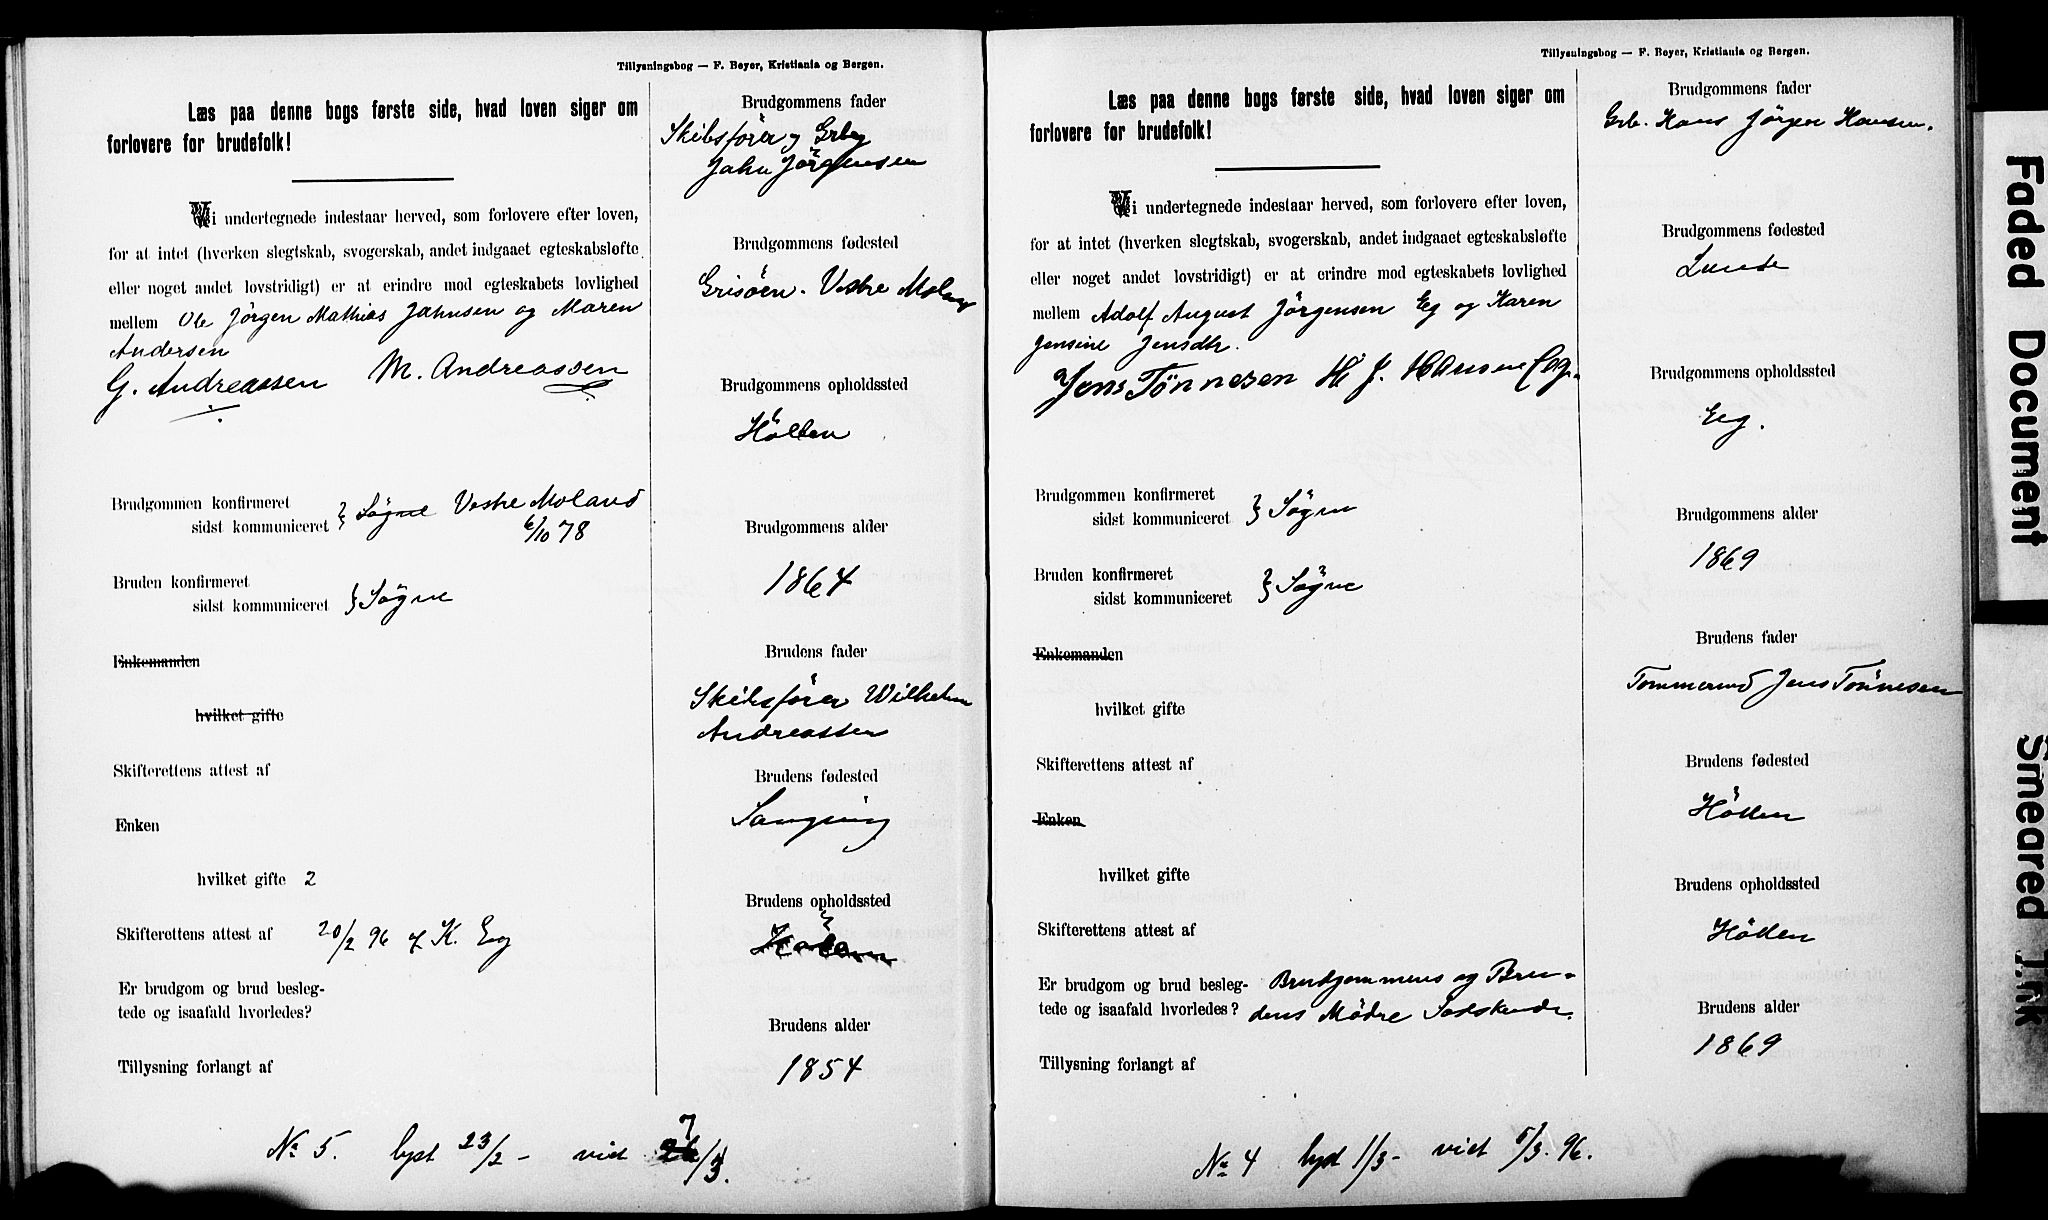 Tillysningsbog — F. Beyer, Kristiania og Bergen.
Læs paa denne bogs første side, hvad loven siger om
forlovere for brudefolk!
Vi undertegnede indestaar herved, som forlovere efter loven,
for at intet (hverken slegtskab, svogerskab, andet indgaaet egteskabsløfte
eller noget andet lovstridigt) er at erindre mod egteskabets lovlighed
mellem Ole Jörgen Mathias Jahnsen og Maren
Andersen
G. Andreassen M. Andreassen
Brudgommen konfirmeret
sidst kommuniceret } Søgne Vestre Moland
6/10 78
Bruden konfirmeret
sidst kommuniceret } Søgne
Enkemanden
hvilket gifte
Skifterettens attest af
Enken
hvilket gifte 2
Skifterettens attest af 20/2 96 f K. Eeg
Er brudgom og brud besleg-
tede og isaafald hvorledes?
Tillysning forlangt af
Brudgommens fader
Skibsfører og Grbr
Jahn Jörgensen
Brudgommens fødested
Grisöen. Vestre Moland
Brudgommens opholdssted
Hölten
Brudgommens alder
1864
Brudens fader
Skibsfører Wilhelm
Andreassen
Brudens fødested
Brudens opholdssted
Brudens alder
1854
No 5. lyst 23/2 - viet 7/3.
Tillysningsbog — F. Beyer, Kristiania og Bergen.
Læs paa denne bogs første side, hvad loven siger om
forlovere for brudefolk!
Vi undertegnede indestaar herved, som forlovere efter loven,
for at intet (hverken slegtskab, svogerskab, andet indgaaet egteskabsløfte
eller noget andet lovstridigt) er at erindre mod egteskabets lovlighed
mellem Adolf August Jörgensen Eeg og Karen
Jensine Jensdtr.
Jens Tönnesen H J. Hansen Eeg.
Brudgommen konfirmeret
sidst kommuniceret } Sögne
Bruden konfirmeret
sidst kommuniceret } Sögne
Enkemanden
hvilket gifte
Skifterettens attest af
Enken
hvilket gifte
Skifterettens attest af
Er brudgom og brud besleg- Brudgommens og Bru-
tede og isaafald hvorledes? dens Mödre Sødskende.
Tillysning forlangt af
Brudgommens fader
Grb. Hans Jörgen Hansen.
Brudgommens fødested
Lunde
Brudgommens opholdssted
Eeg.
Brudgommens alder
1869
Brudens fader
Tømmermd Jens Tönnesen
Brudens fødested
Hölten
Brudens opholdssted
Hölten
Brudens alder
1869
No 4 lyst 1/3 - viet 5/3. 96.
Faded Document
Smeared Ink